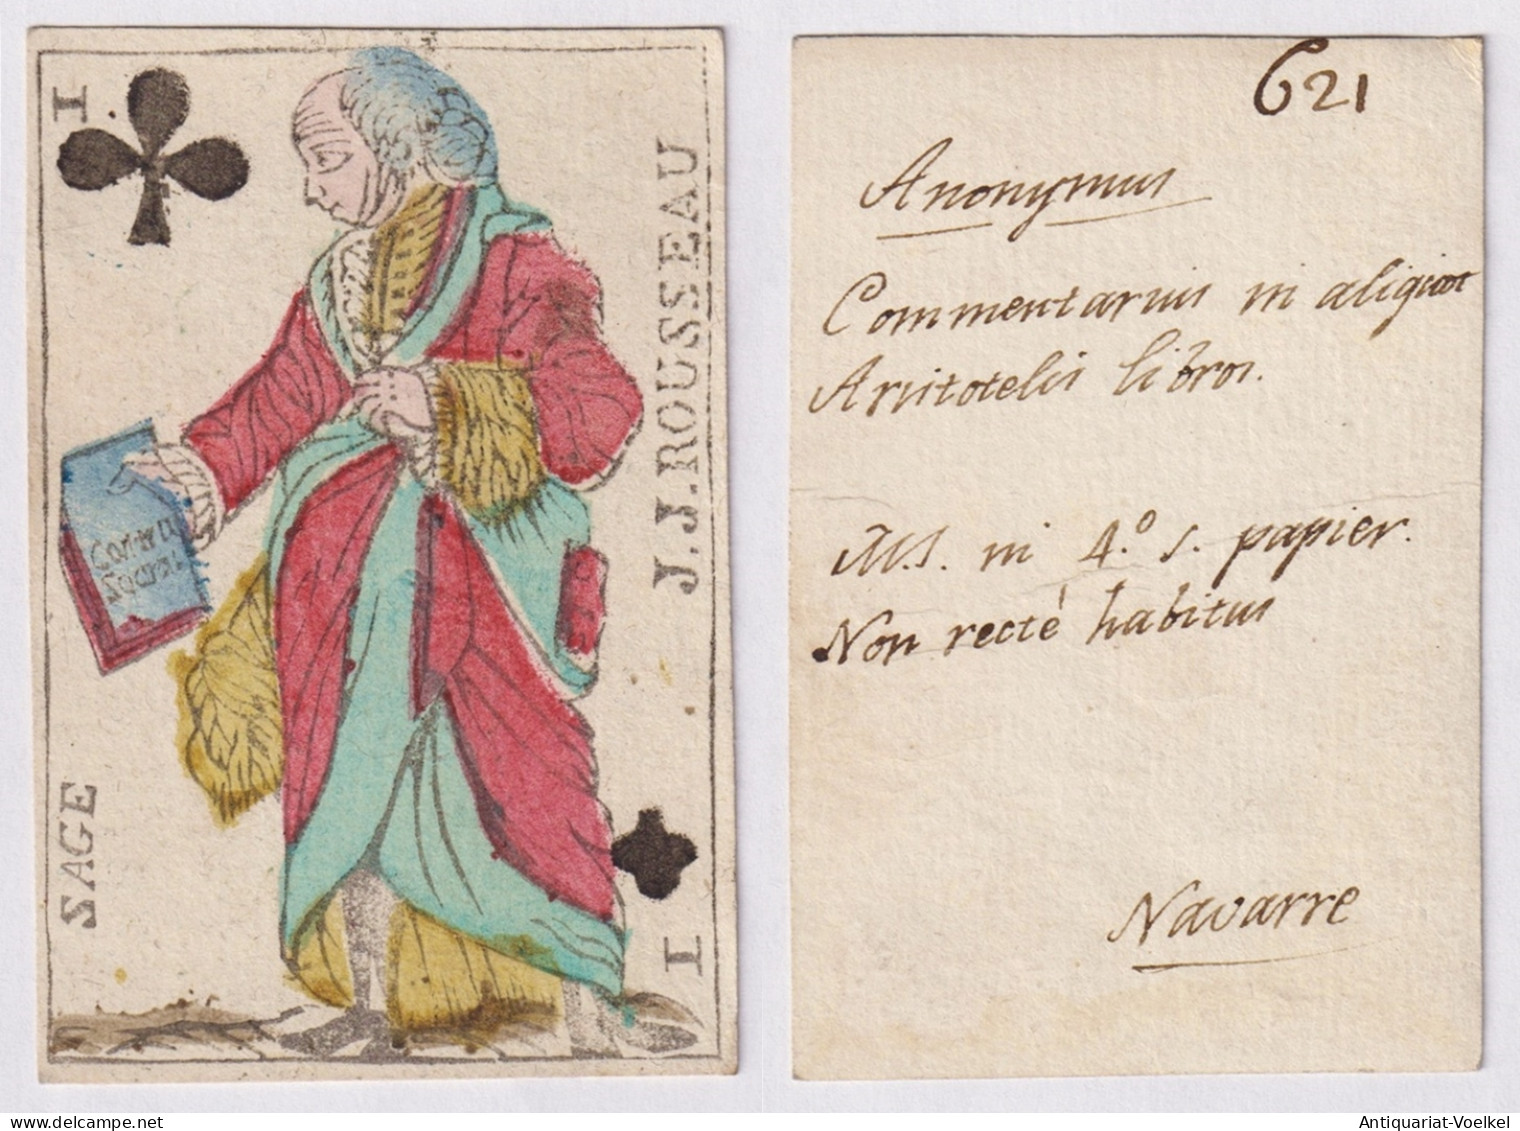 I
J.J.ROUSSEAU
SAGE
I
621
Anonymus
Commentarius in aliquot
Aristotelis libros.
M.S. in 4.º s. papier.
Non recté habitus
Navarre
Antiquariat-Voelkel.com